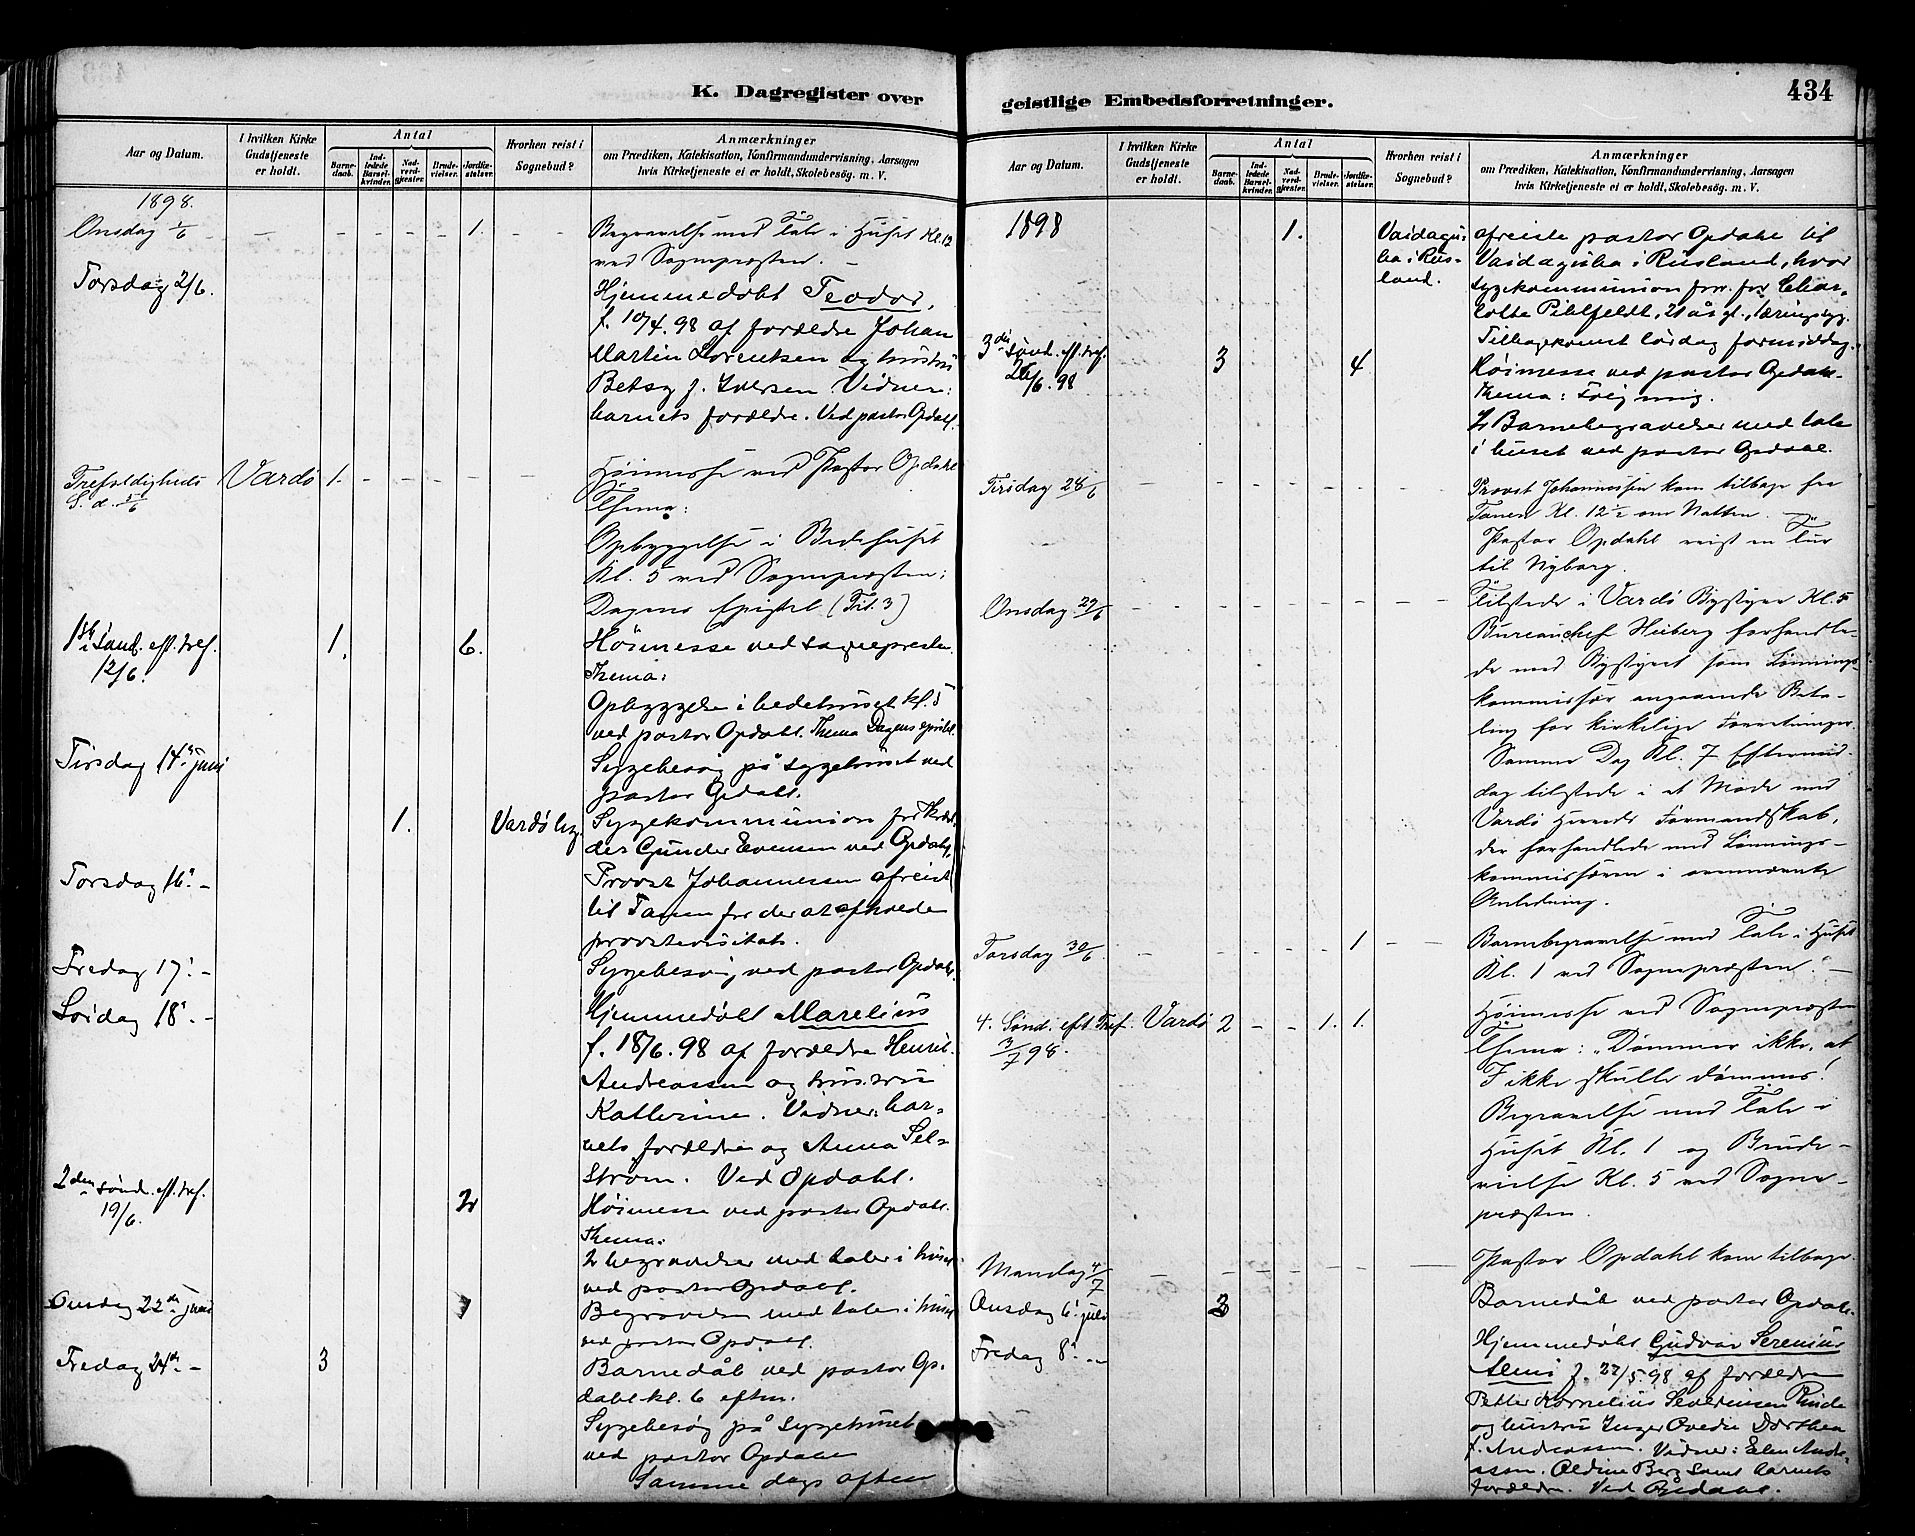 K. Dagregister over
Aar og Datum.
I hvilken Kirke
Gudstjeneste
er holdt.
Antal
Barne-
daab.
Ind-
ledede
Barsel-
kvinder.
Nad-
verd-
gjester.
Brude-
vielser.
Jordfæ-
stelser.
Hvorhen reist i
Sognebud?
Anmærkninger
om Prædiken, Katekisation, Konfirmandundervisning, Aarsagen
hvis Kirketjeneste ei er holdt, Skolebesøg. m. V.
1898.
Onsdag 1/6 - - - - - 1. - - Begravelse med Tale i Huset Kl. 12
ved Sognepræsten. -
Torsdag 2/6. Hjemmedøbt Teodor,
f. 10/4. 98 af forældre Johan
Martin Lorentsen og hustru
Betsy f. Iversen Vidner:
barnets forældre. Ved pastor Opdahl.
Trefoldigheds Vardø 1. - - - - - - Høimesse ved Pastor Opdahl
S. d. 5/6 Thema:
Opbyggelse i Bedehuset
Kl. 5 ved Sognepræsten:
Dagens Epistel (Tit. 3)
1ste sönd. eft. tref. 1. 6. Høimesse ved sognepresten
12/6. Thema:
Opbyggelse i bedehuset kl. 5
ved pastor Opdahl. Thema Dagens epistel.
Tirsdag 14. juni Sygebesøg på sygehuset ved
pastor Opdahl.
1. Vardø by. Sygekommunion for
Gunder Evensen ved Opdahl.
Torsdag 16. - Provst Johannessen afreist
til Tanen for der at afholde
provstevisitats.
Fredag 17. - Sygebesøg ved pastor Opdahl.
Lördag 18. - Hjemmedøbt Marelius
f. 18/6. 98 af forældre Henrik
Andreassen og hustru
Katherine. Vidner: bar-
nets forældre og Anna Sel-
strøm. Ved Opdahl.
2den sönd. eft. tref. 2 Høimesse ved pastor Opdahl.
19/6. Thema:
2 begravelser med taler i huset
ved pastor Opdahl.
Onsdag 22de juni 1 Begravelse med tale i huset
ved pastor Opdahl.
Fredag 24de - 3 Barnedåb ved pastor Op-
dahl kl. 6 eftm.
Sygebesøg på sygehuset
ved pastor Opdahl
Samme dags aften
geistlige Embedsforretninger.
434
Aar og Datum.
I hvilken Kirke
Gudstjeneste
er holdt.
Antal
Barne-
daab.
Ind-
ledede
Barsel-
kvinder.
Nad-
verd-
gjester.
Brude-
vielser.
Jordfæ-
stelser.
Hvorhen reist i
Sognebud?
Anmærkninger
om Prædiken, Katekisation, Konfirmandundervisning, Aarsagen
hvis Kirketjeneste ei er holdt, Skolebesøg. m. V.
1898 1. Vaidagu- afreiste pastor Opdahl til
ba i Rus- Vaidaguba i Rusland, hvor
land. sygekommunion forr. for Char-
lotte Pihlfeldt, 21 år gl.,
Tilbagekomst lördag formiddag.
3die sönd. eft. tref. 3 4 Høimesse ved pastor Opdahl.
26/6. 98 Thema: Følg mig.
4 Barnebegravelser med tale
i huset ved pastor Opdahl.
Tirsdag 28/6 - - - - - - - - Provst Johannessen kom tilbage fra
Tanen Kl. 12 1/2 om Natten. -
Pastor Opdahl reist en Tur
til Nyborg.
Onsdag 29/6 - - - - - - - - Tilstede i Vardø Bystyre Kl. 5
Bureauchef Hiberg forhandle-
de med Bystyret som Lønnings-
kommissær angaaende Beta-
ling for kirkelige Forretninger.
Samme Dag Kl. 7 Eftermid-
dag tilstede i et Møde med
Vardø Herreds Formandskab,
der forhandlede med Lønnings-
kommissæren i ovennævnte
Anledning.
Torsdag 30/6 - - - - - 1 - - Barnebegravelse med Tale i Huset
Kl. 1 ved Sognepræsten. -
4. Sönd. eft. Tref. Vardø 2 - - 1. 1. Høimesse ved Sognepræsten
3/7 98. Thema: „Dømmer ikke, at
I ikke skulle dømmes!
Begravelse med Tale i
Huset Kl. 1 og Brude-
vielse Kl. 5 ved Sogne-
præsten.
Mandag 4/7 - - - - - - - Pastor Opdahl kom tilbage.
Onsdag 6. juli 3 Barnedåb ved pastor Opdahl.
Fredag 8. - Hjemmedøbt Gudvar Serenius
Almi f. 27/5. 98 af forældre
Petter Kornelius Severinsen
og hustru Inger Ovedie Dorthea
f. Andreassen. Vidner: Elen Andre-
assen. Oldine Berg samt barnets
forældre. Ved Opdahl.